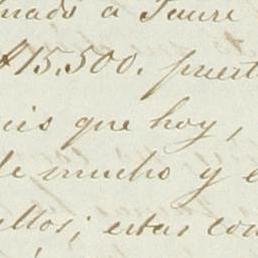 nado a Taure
$15.500. puert
uis que hoy,
le mucho y e
llos; estas con